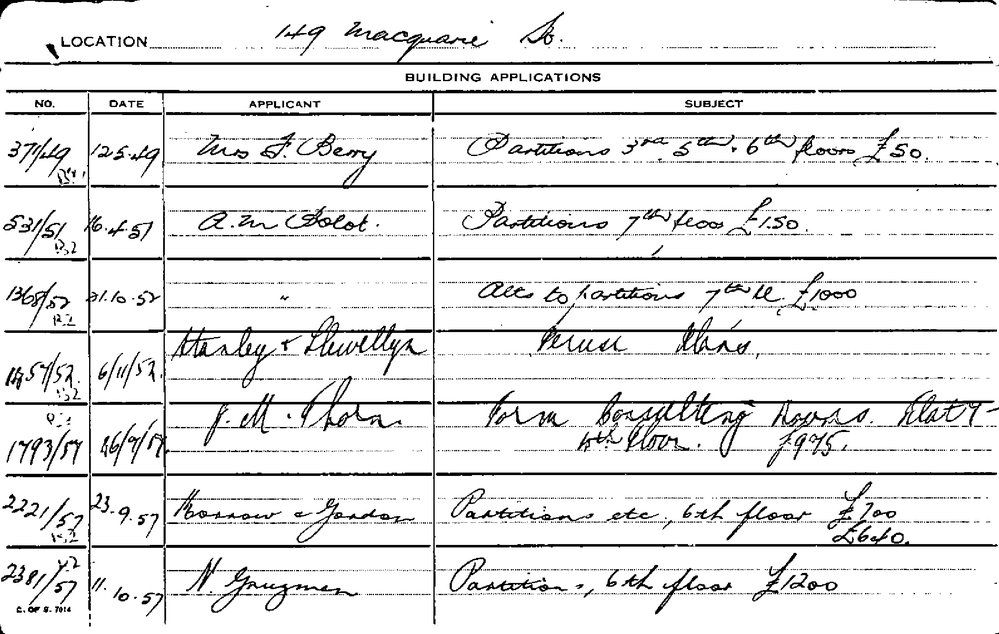 LOCATION 149 Macquarie St.
BUILDING APPLICATIONS
NO. DATE APPLICANT SUBJECT
371/49 12.5.49 Mrs F. Berry Partitions 3rd, 5th, 6th floors £50.
B2
531/51 16.4.51 A.M. Bolot. Partitions 7th floor £150.
B2
1368/52 21.10.52 " Alts to partitions 7th fl. £1000
B2
Stanley & Llewellyn Peruse Plans.
1457/52. 6/11/52.
B2
B2 J. M. Thorn. Form Consulting Rooms. Flat 7 -
1793/57 26/7/57. 4th Floor. £975.
2221/57 23.9.57 Morrow & Gordon Partitions etc, 6th floor £700
B2 £640.
2381/57 11.10.57 N. Gruzman Partitions, 6th floor £1200
C. OF S. 7014